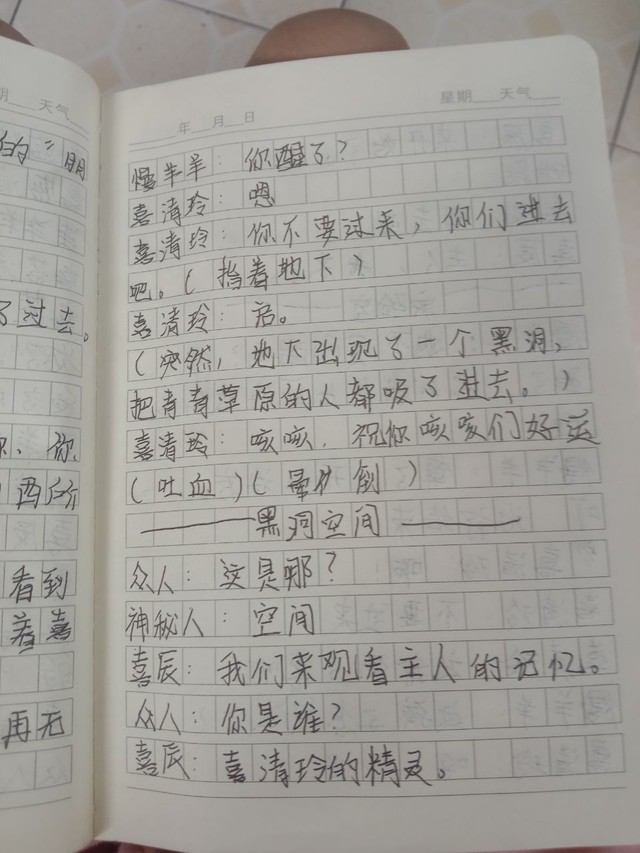 期 天气
的"明
了过去。
你、你
西所
看到
着喜
再无
年 月 日 星期 天气
慢羊羊：你醒了？
喜清玲：嗯
喜清玲：你不要过来，你们进去
吧。（指着地下）
喜清玲：启。
（突然，地下出现了一个黑洞，
把青青草原的人都吸了进去。）
喜清玲：咳咳，祝你咳咳们好运
（吐血）（晕倒）
——黑洞空间——
众人：这是哪？
神秘人：空间
喜辰：我们来观看主人的记忆。
众人：你是谁？
喜辰：喜清玲的精灵。